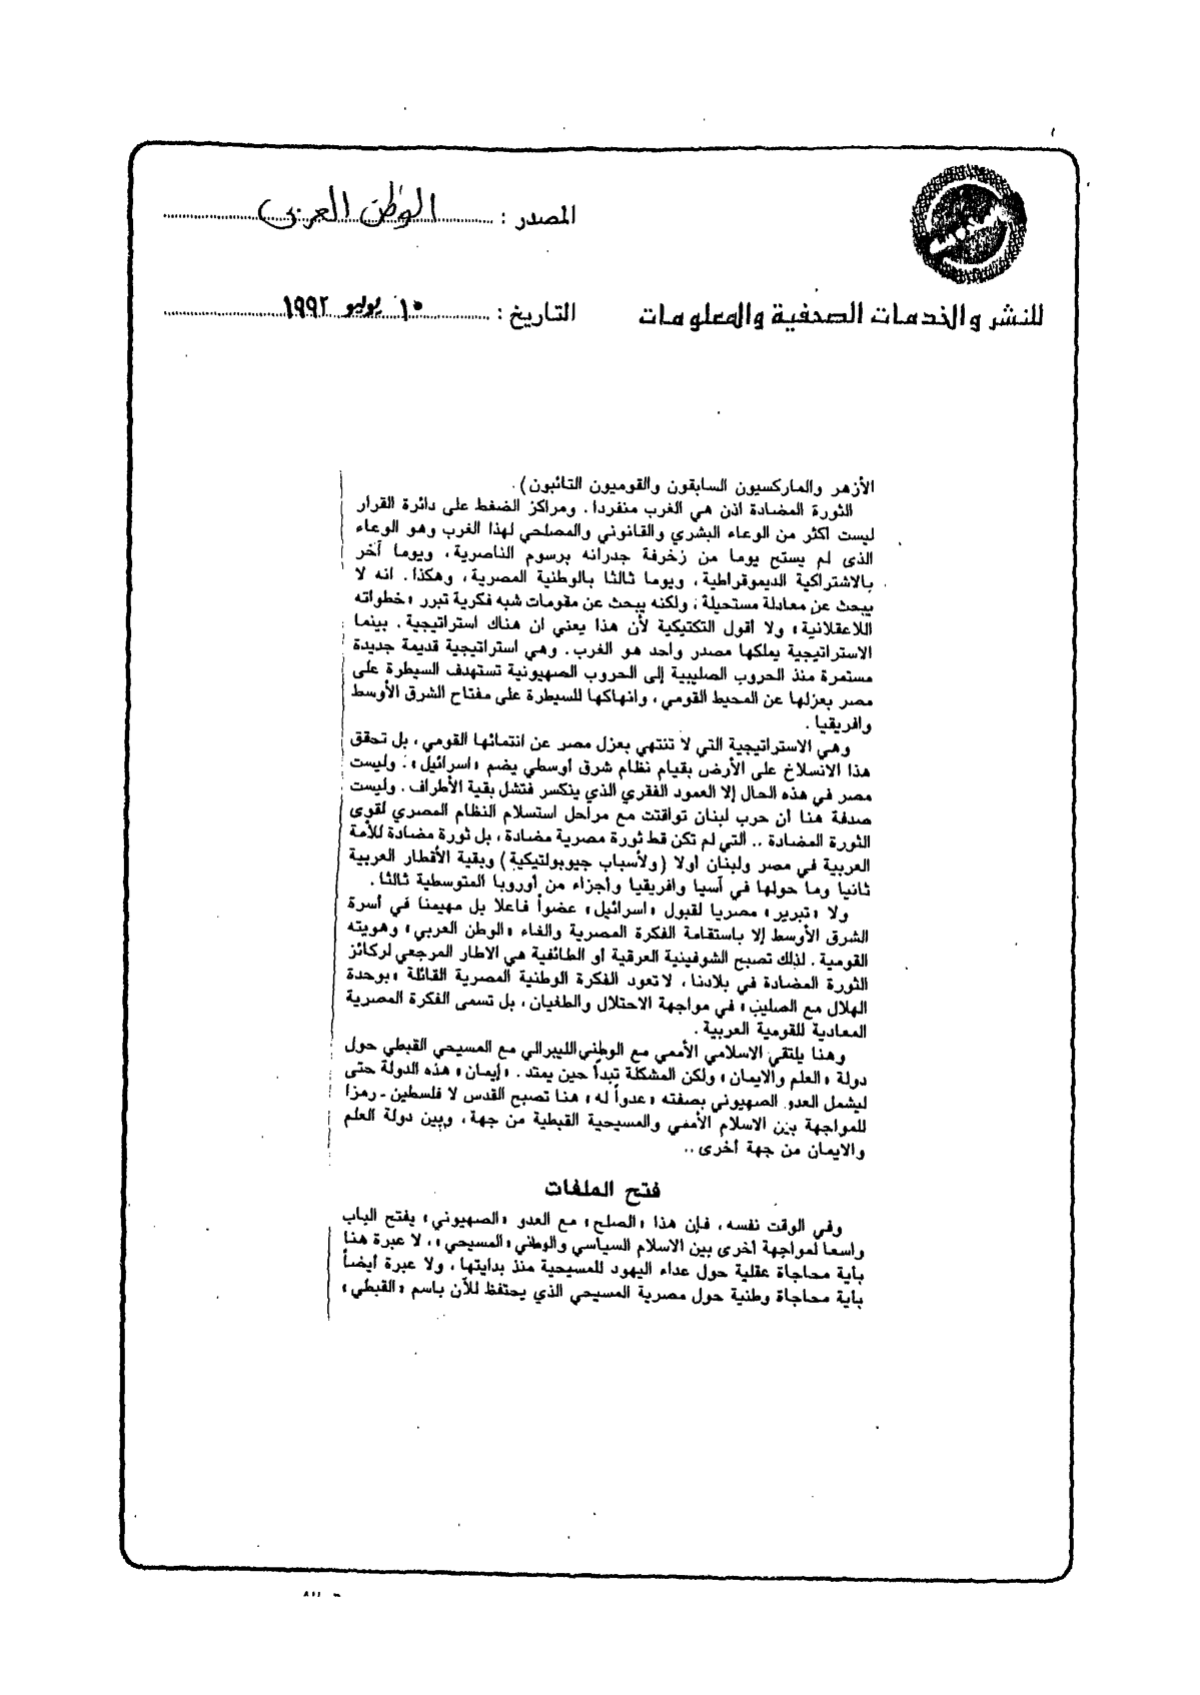 المصدر : الوطن العربى
للنشر والخدمات الصحفية والمعلومات
التاريخ : ١٠ يوليو ١٩٩٢
الأزهر والماركسيون السابقون والقوميون التائبون) .
الثورة المضادة اذن هي الغرب منفردا . ومراكز الضغط على دائرة القرار
ليست اكثر من الوعاء البشري والقانوني والمصلحي لهذا الغرب وهو الوعاء
الذى لم يستح يوما من زخرفة جدرانه برسوم الناصرية ، ويوما آخر
بالاشتراكية الديموقراطية ، ويوما ثالثا بالوطنية المصرية ، وهكذا . انه لا
يبحث عن معادلة مستحيلة ، ولكنه يبحث عن مقومات شبه فكرية تبرر «خطواته
اللاعقلانية» ولا اقول التكتيكية لأن هذا يعني ان هناك استراتيجية . بينما
الاستراتيجية يملكها مصدر واحد هو الغرب . وهي استراتيجية قديمة جديدة
مستمرة منذ الحروب الصليبية إلى الحروب الصهيونية تستهدف السيطرة على
مصر بعزلها عن المحيط القومي ، وانهاكها للسيطرة على مفتاح الشرق الأوسط
وافريقيا .
وهي الاستراتيجية التي لا تنتهي بعزل مصر عن انتمائها القومي ، بل تحقق
هذا الانسلاخ على الأرض بقيام نظام شرق أوسطي يضم «اسرائيل» . وليست
مصر في هذه الحال إلا العمود الفقري الذي ينكسر فتشل بقية الأطراف . وليست
صدفة هنا ان حرب لبنان تواقتت مع مراحل استسلام النظام المصري لقوى
الثورة المضادة .. التي لم تكن قط ثورة مصرية مضادة ، بل ثورة مضادة للأمة
العربية في مصر ولبنان أولا (ولأسباب جيوبولتيكية) وبقية الأقطار العربية
ثانيا وما حولها في آسيا وافريقيا وأجزاء من أوروبا المتوسطية ثالثا .
ولا «تبرير» مصريا لقبول «اسرائيل» عضواً فاعلا بل مهيمنا في أسرة
الشرق الأوسط إلا باستقامة الفكرة المصرية والغاء «الوطن العربي» وهويته
القومية . لذلك تصبح الشوفينية العرقية أو الطائفية هي الاطار المرجعي لركائز
الثورة المضادة في بلادنا ، لا تعود الفكرة الوطنية المصرية القائلة «بوحدة
الهلال مع الصليب» في مواجهة الاحتلال والطغيان ، بل تسمى الفكرة المصرية
المعادية للقومية العربية .
وهنا يلتقي الاسلامي الأممي مع الوطني الليبرالي مع المسيحي القبطي حول
دولة «العلم والايمان» ولكن المشكلة تبدأ حين يمتد . «إيمان» هذه الدولة حتى
ليشمل العدو الصهيوني بصفته «عدواً له» هنا تصبح القدس لا فلسطين - رمزا
للمواجهة بين الاسلام الأممي والمسيحية القبطية من جهة ، وبين دولة العلم
والايمان من جهة أخرى ..
فتح الملفات
وفي الوقت نفسه ، فإن هذا «الصلح» مع العدو «الصهيوني» يفتح الباب
واسعا لمواجهة أخرى بين الاسلام السياسي والوطني «المسيحي» ، لا عبرة هنا
بأية محاجاة عقلية حول عداء اليهود للمسيحية منذ بدايتها ، ولا عبرة أيضاً
بأية محاجاة وطنية حول مصرية المسيحي الذي يحتفظ للآن باسم «القبطي»